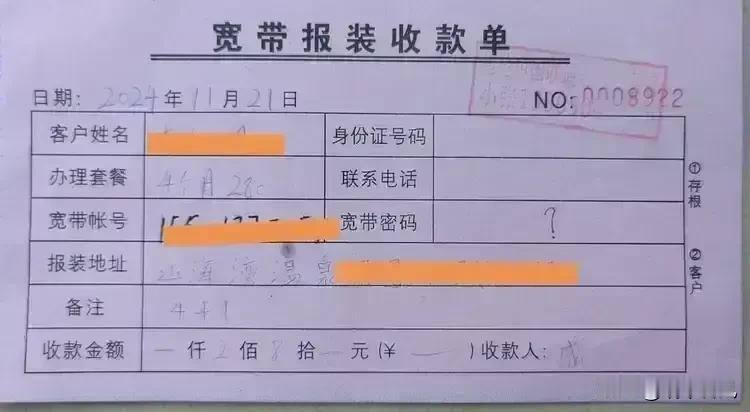 宽带报装收款单
日期: 2024年11月21日 NO: 0008922
客户姓名 身份证号码
办理套餐 4个月280 联系电话
宽带帐号 宽带密码 ?
报装地址 山海湾温泉
备注
收款金额 一仟2佰8拾一元(¥ — )收款人:
①存根
②客户